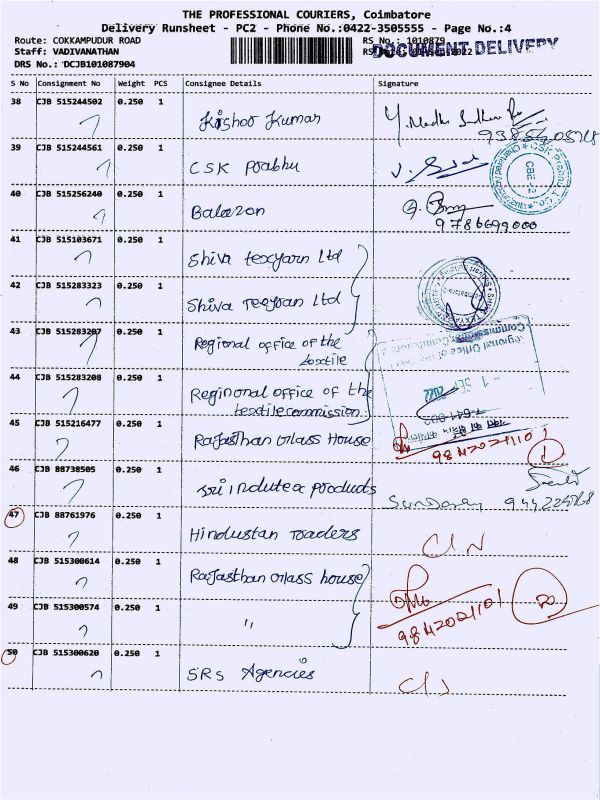 THE PROFESSIONAL COURIERS, Coimbatore
Delivery Runsheet - PC2 - Phone No.:0422-3505555 - Page No.:4
Route: COKKAMPUDUR ROAD RS No.: 1010879
Staff: VADIVANATHAN DOCUMENT DELIVERY
DRS No.: DCJB101087904
S No Consignment No Weight PCS Consignee Details Signature
38 CJB 515244502 0.250 1 Kishor Kumar
39 CJB 515244561 0.250 1 CSK Prabhu
40 CJB 515256240 0.250 1
9786699000
41 CJB 515103671 0.250 1 Shiva texyarn Ltd
42 CJB 515283323 0.250 1 Shiva Ltd
43 CJB 515283207 0.250 1 Regional office of the
textile
44 CJB 515283208 0.250 1 Reginonal office of the
textile commission
1 SEP 2022
45 CJB 515216477 0.250 1 Rajasthan Glass House
46 CJB 88738505 0.250 1 Sri indutex products
47 CJB 88761976 0.250 1 Hindustan Traders
48 CJB 515300614 0.250 1 Rajasthan Glass house
49 CJB 515300574 0.250 1 "
9842021101 20
50 CJB 515300620 0.250 1 SRS Agencies